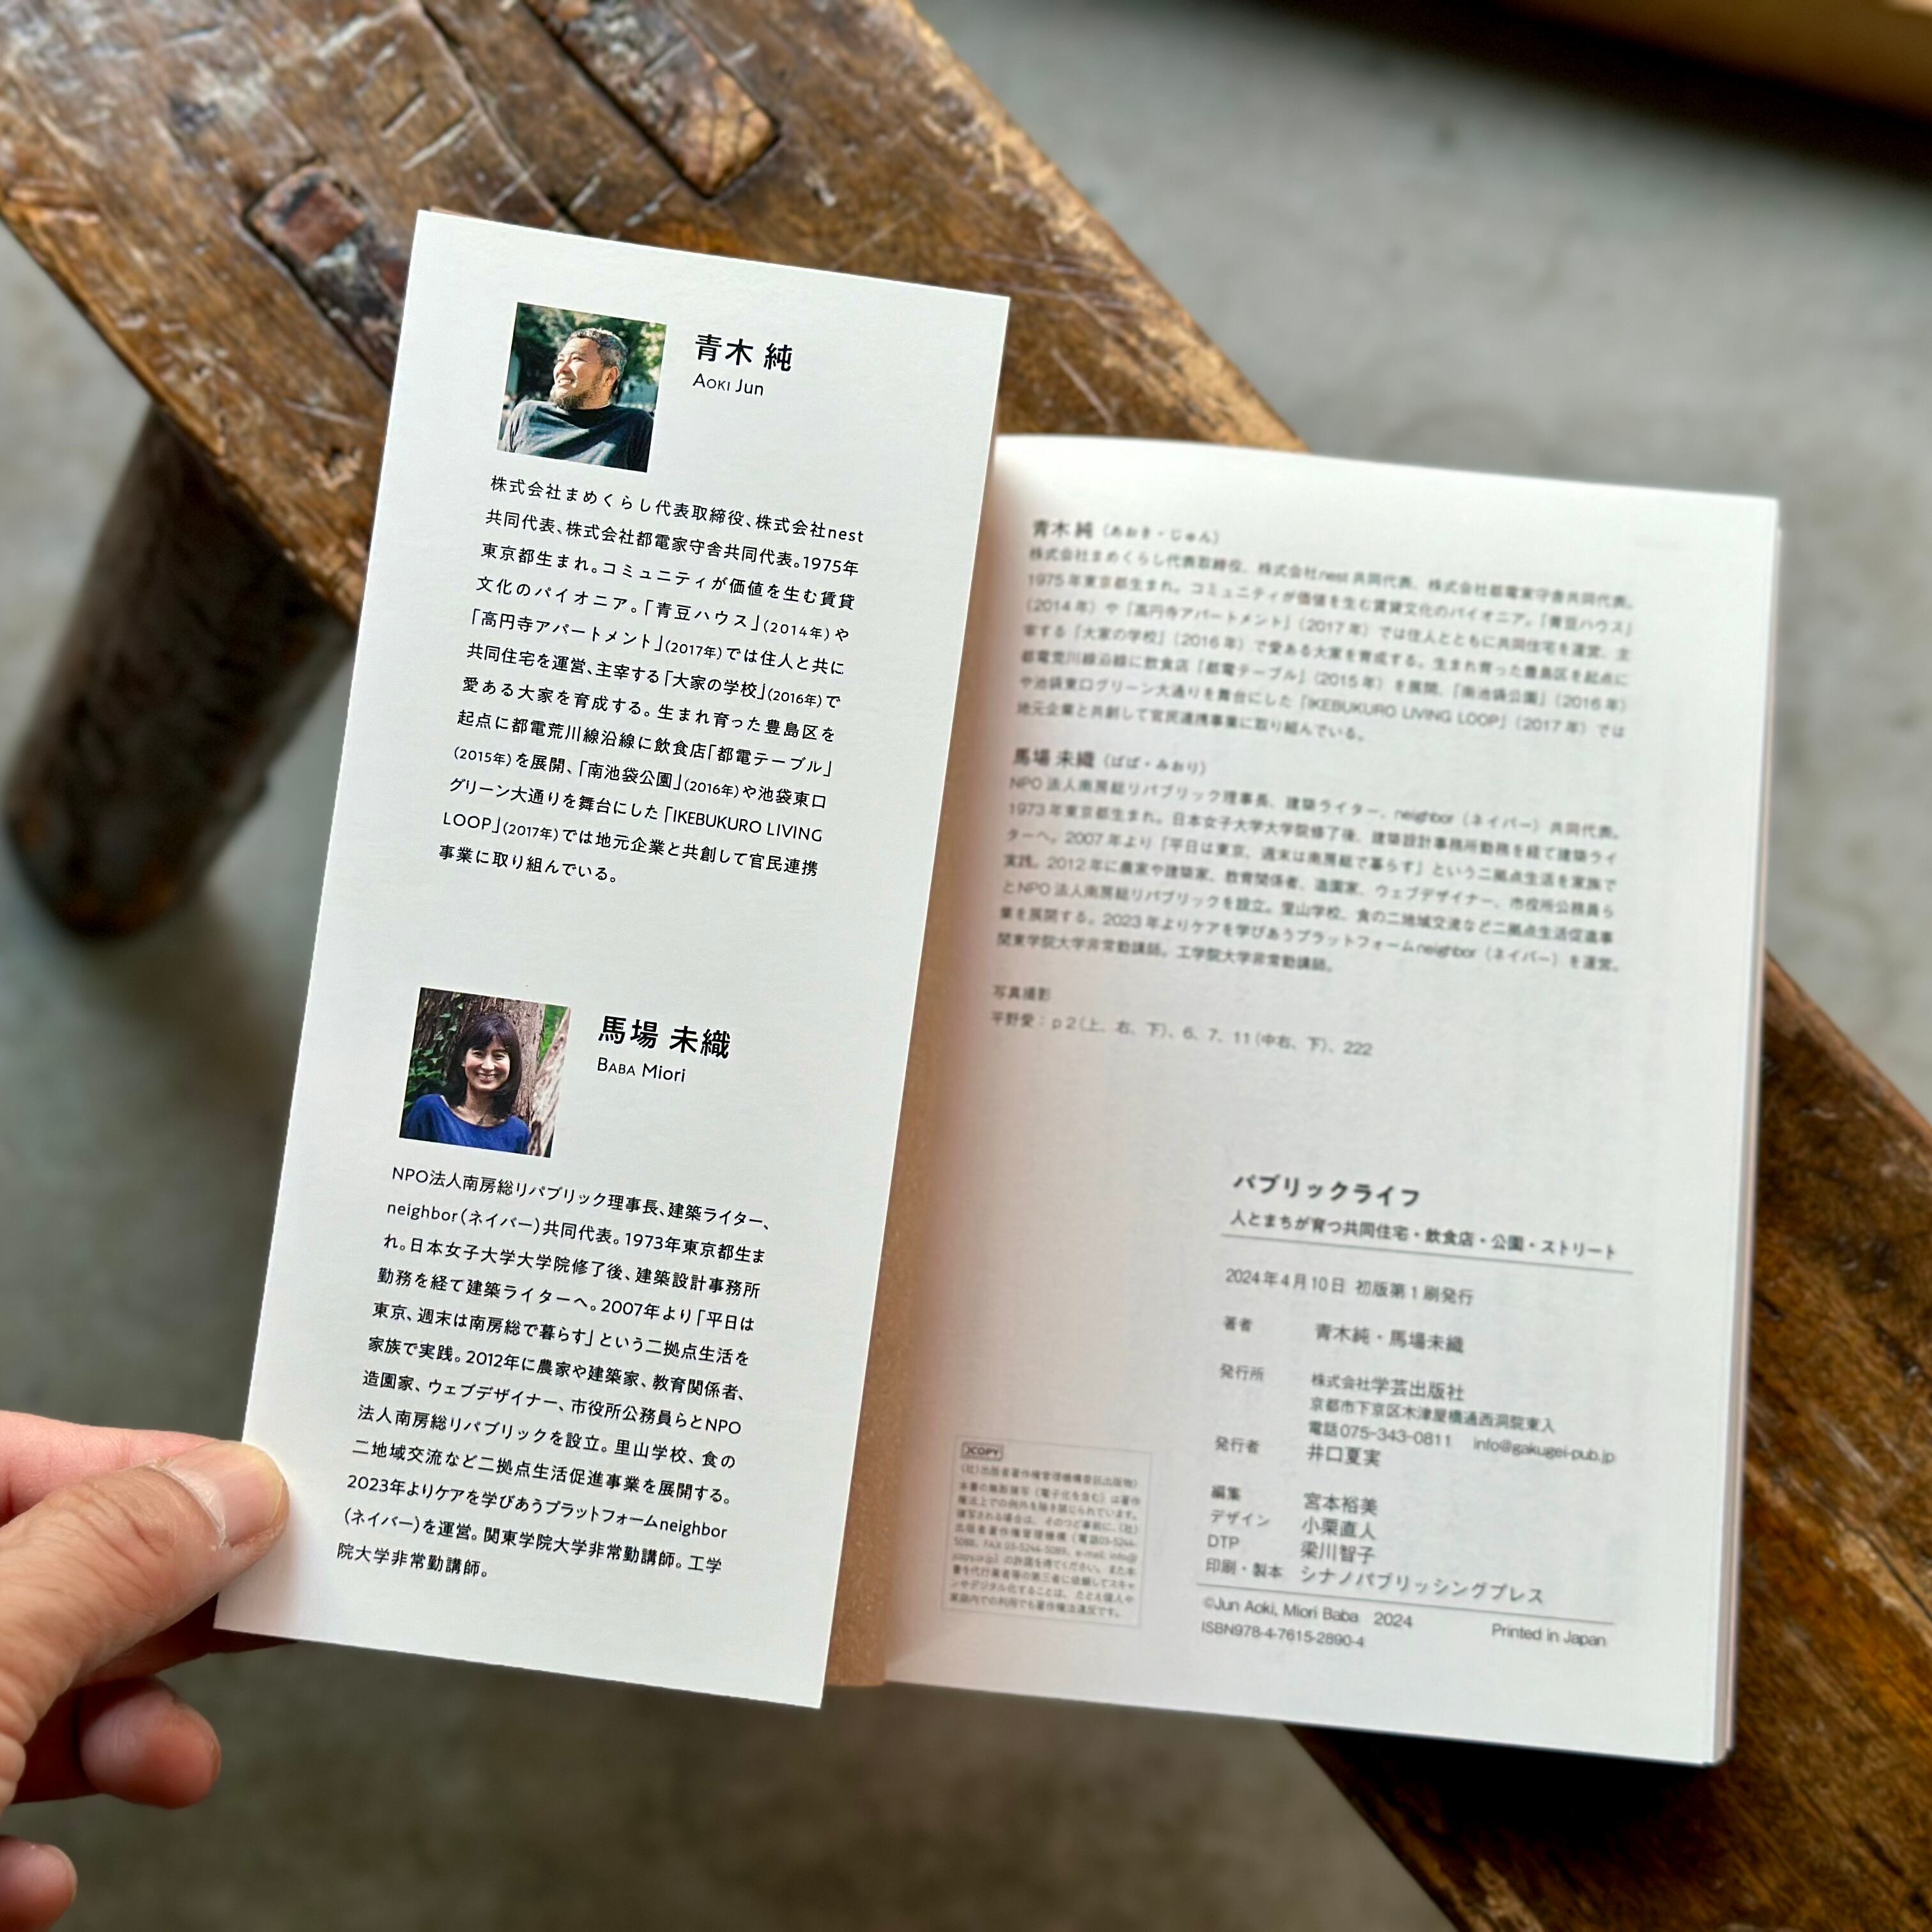 青木 純
AOKI Jun
株式会社まめくらし代表取締役、株式会社nest
共同代表、株式会社都電家守舎共同代表。1975年
東京都生まれ。コミュニティが価値を生む賃貸
文化のパイオニア。「青豆ハウス」(2014年)や
「高円寺アパートメント」(2017年)では住人と共に
共同住宅を運営、主宰する「大家の学校」(2016年)で
愛ある大家を育成する。生まれ育った豊島区を
起点に都電荒川線沿線に飲食店「都電テーブル」
(2015年)を展開、「南池袋公園」(2016年)や池袋東口
グリーン大通りを舞台にした「IKEBUKURO LIVING
LOOP」(2017年)では地元企業と共創して官民連携
事業に取り組んでいる。
馬場 未織
BABA Miori
NPO法人南房総リパブリック理事長、建築ライター、
neighbor(ネイバー)共同代表。1973年東京都生ま
れ。日本女子大学大学院修了後、建築設計事務所
勤務を経て建築ライターへ。2007年より「平日は
東京、週末は南房総で暮らす」という二拠点生活を
家族で実践。2012年に農家や建築家、教育関係者、
造園家、ウェブデザイナー、市役所公務員らとNPO
法人南房総リパブリックを設立。里山学校、食の
二地域交流など二拠点生活促進事業を展開する。
2023年よりケアを学びあうプラットフォームneighbor
(ネイバー)を運営。関東学院大学非常勤講師。工学
院大学非常勤講師。
青木 純（あおき・じゅん）
株式会社まめくらし代表取締役、株式会社nest共同代表、株式会社都電家守舎共同代表。
1975年東京都生まれ。コミュニティが価値を生む賃貸文化のパイオニア。「青豆ハウス」
（2014年）や「高円寺アパートメント」（2017年）では住人とともに共同住宅を運営、主
宰する「大家の学校」（2016年）で愛ある大家を育成する。生まれ育った豊島区を起点に
都電荒川線沿線に飲食店「都電テーブル」（2015年）を展開、「南池袋公園」（2016年）
や池袋東口グリーン大通りを舞台にした「IKEBUKURO LIVING LOOP」（2017年）では
地元企業と共創して官民連携事業に取り組んでいる。
馬場 未織（ばば・みおり）
NPO法人南房総リパブリック理事長、建築ライター、neighbor（ネイバー）共同代表。
1973年東京都生まれ。日本女子大学大学院修了後、建築設計事務所勤務を経て建築ライ
ターへ。2007年より「平日は東京、週末は南房総で暮らす」という二拠点生活を家族で
実践。2012年に農家や建築家、教育関係者、造園家、ウェブデザイナー、市役所公務員ら
とNPO法人南房総リパブリックを設立。里山学校、食の二地域交流など二拠点生活促進事
業を展開する。2023年よりケアを学びあうプラットフォームneighbor（ネイバー）を運営。
関東学院大学非常勤講師。工学院大学非常勤講師。
写真撮影
平野愛：p2（上、右、下）、6、7、11（中右、下）、222
パブリックライフ
人とまちが育つ共同住宅・飲食店・公園・ストリート
2024年4月10日 初版第1刷発行
著者 青木純・馬場未織
発行所 株式会社学芸出版社
京都市下京区木津屋橋通西洞院東入
電話075-343-0811 info@gakugei-pub.jp
発行者 井口夏実
編集 宮本裕美
デザイン 小栗直人
DTP 梁川智子
印刷・製本 シナノパブリッシングプレス
©Jun Aoki, Miori Baba 2024 Printed in Japan
ISBN978-4-7615-2890-4
JCOPY
〈（社）出版者著作権管理機構委託出版物〉
本書の無断複写（電子化を含む）は著作
権法上での例外を除き禁じられています。
複写される場合は、そのつど事前に、（社）
出版者著作権管理機構（電話03-5244-
5088、FAX 03-5244-5089、e-mail: info@
jcopy.or.jp）の許諾を得てください。また本
書を代行業者等の第三者に依頼してスキャ
ンやデジタル化することは、たとえ個人や
家庭内での利用でも著作権法違反です。